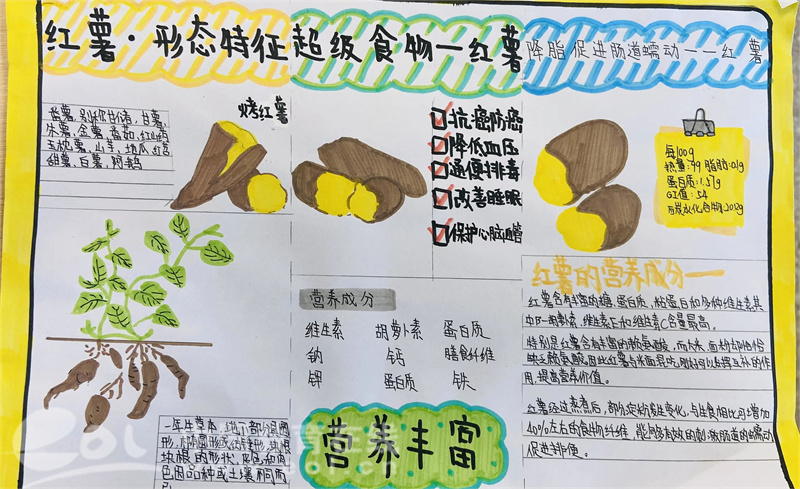 红薯·形态特征
超级食物一红薯
降脂促进肠道蠕动——红薯
番薯,别称甘储,甘薯,
朱薯,金薯,番茄,红山药
玉枕薯,山芋,地瓜,红苕
甜薯,白薯,阿鹅
烤红薯
抗癌防癌
降低血压
通便排毒
改善睡眠
保护心脑血管
每100g
热量:99 脂肪:0.1g
蛋白质:1.57g
GI值:54
营养成分
维生素 胡萝卜素 蛋白质
钠 钙 膳食纤维
钾 蛋白质 铁
营养丰富
红薯的营养成分一
红薯含有丰富的糖,蛋白质,粘蛋白和多种维生素其
维生素E和维生素C含量最高。
特别是红薯含有丰富的赖氨酸,而大米,面粉却恰恰
缺乏赖氨酸因此红薯与米面混吃,刚好可以发挥互补的作
用,提高营养价值。
红薯经过蒸煮后,部分淀粉发生变化,与生食相比可增加
40%左右的食物纤维,能够有效的刺激肠道的蠕动
促进排便。
一年生草本,地下部分圆
形,椭圆形或纺锤形,块根
块根的形状,皮色和肉
色因品种或土壤不同而